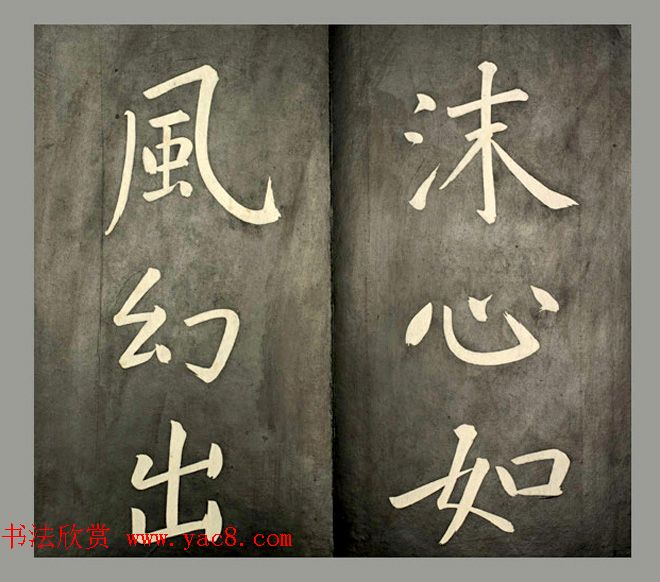 沫心如
風幻出
书法欣赏 www.yac8.com